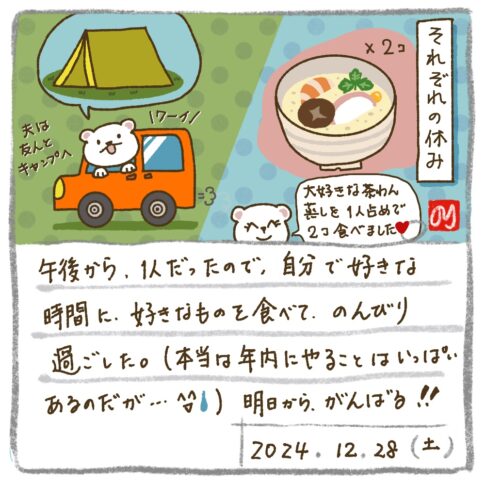 それぞれの休み
×2コ
夫は
友人と
キャンプへ
ワーイ
大好きな茶わん
蒸しを1人占めで
2コ食べました♥
午後から、1人だったので、自分で好きな
時間に、好きなものを食べて、のんびり
過ごした。(本当は年内にやることはいっぱい
あるのだが…) 明日から、がんばる!!
2024.12.28(土)